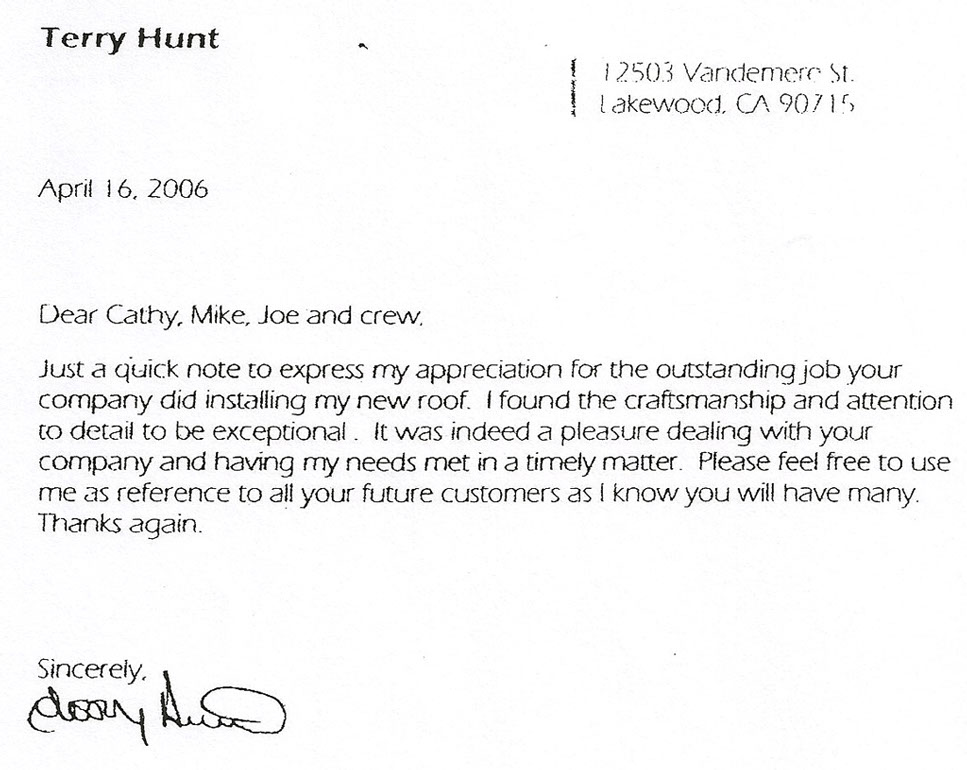 Terry Hunt
12503 Vandemere St.
Lakewood, CA 90715
April 16, 2006
Dear Cathy, Mike, Joe and crew,
Just a quick note to express my appreciation for the outstanding job your
company did installing my new roof. I found the craftsmanship and attention
to detail to be exceptional. It was indeed a pleasure dealing with your
company and having my needs met in a timely matter. Please feel free to use
me as reference to all your future customers as I know you will have many.
Thanks again.
Sincerely,
Terry Hunt